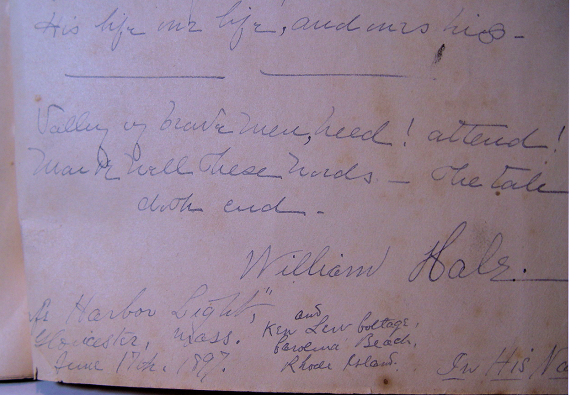 His life our life, and ours his -
Valley of brave men, heed! attend!
Mark well these words - The tale
doth end -
William Hale.
At Harbor Light,"
Gloucester, Mass.
June 17th. 1897.
and
Cottage,
Carolina Beach,
Rhode Island.
In His Na